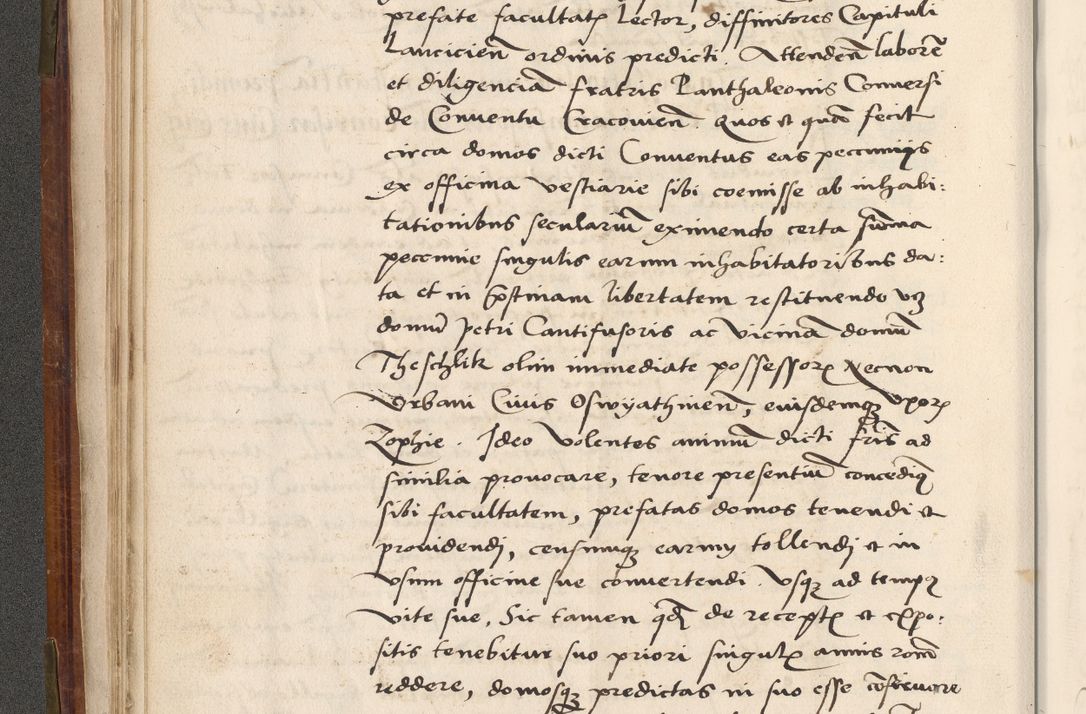 prefate facultatꝭ lector, diffinitores Capituli
Lanciciēn ordinis predicti. Attendeñ laborē
et diligenciā fratris Panthaleonis Conversi
de Conventu Cracovieñ. quos et quā fecit
circa domos dicti Conventus eas pecunijs
ex officina vestiarie sibi coemisse ab inhabi:
tationibus seculariū eximendo certa sūma
peccunie singulis earum inhabitatoribus da:
ta et in pͥstinam libertatem restituendo vꝫ
domū petri Cantifusoris ac vicinā domū
Theschlik olim immediate possessorꝭ Necnon
Vrbani Civis Oswyathimeñ, eiusdemqꝫ vxorꝭ
Zophie. Ideo volentes animū dicti frīs ad
similia provocare, tenore presentiū concediꝰ
sibi facultatem, prefatas domos tenendi et
providendj, censumqꝫ earum tollendj et in
vsum officine sue convertendi. vsqꝫ ad tempꝰ
vite sue, Sic tamen qđ de receptꝭ et expo:
sitis tenebitur suo priori singulꝭ annis roñē
reddere, domosqꝫ predictas in suo esse cōservare